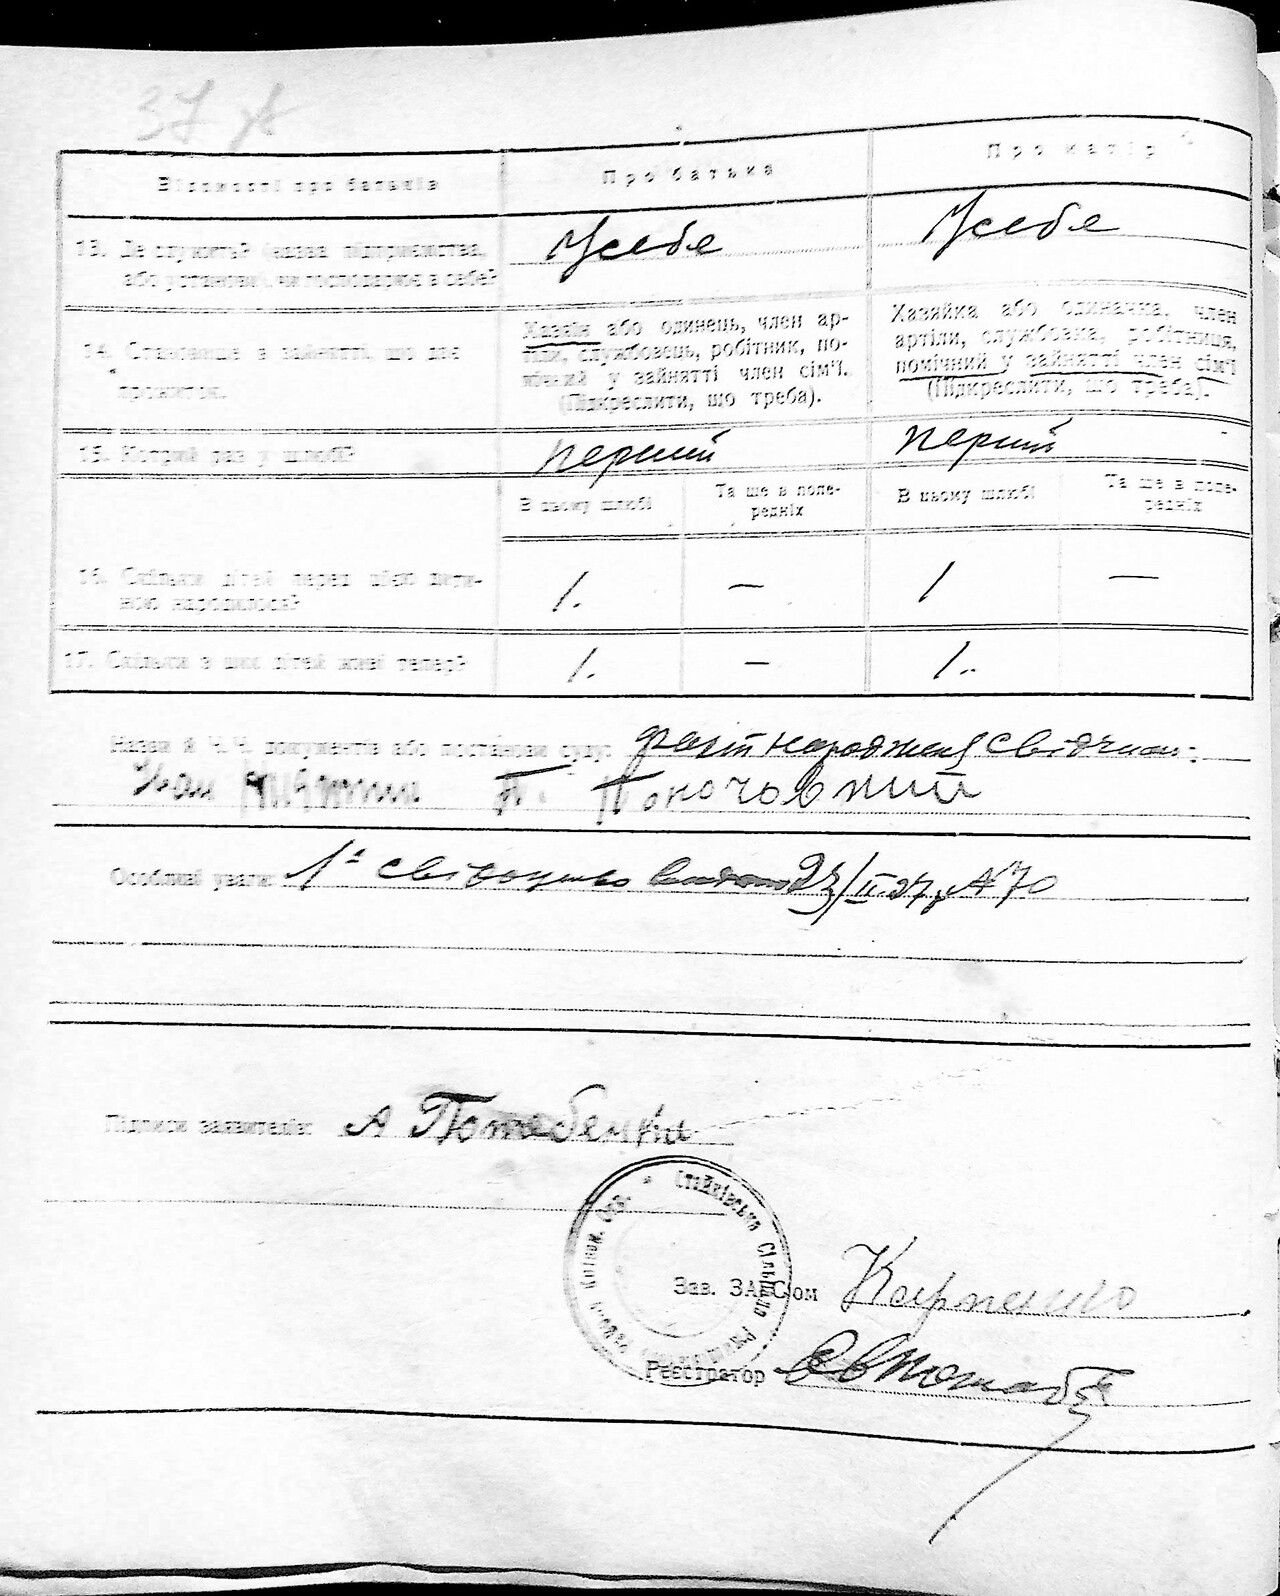 37
Відомості про батьків
Про батька
Про матір
13. Де служить? (назва підприємства,
або установи, чи господарює в себе?
Усебе
Усебе
14. Становище в зайнятті, що дає
прожиток.
Хазяїн або одинець, член ар-
тіли, службовець, робітник, по-
мічний у зайнятті член сім'ї.
(Підкреслити, що треба).
Хазяйка або одиначка, член
артіли, службовка, робітниця,
помічний у зайнятті член сім'ї
(Підкреслити, що треба).
15. Котрий раз у шлюбі?
перший
перший
В цьому шлюбі
Та ще в попе-
редніх
В цьому шлюбі
Та ще в попе-
редніх
16. Скільки дітей перед цією дити-
ною народилося?
1.
—
1
—
17. Скільки з цих дітей живі тепер?
1.
—
1.
Назви й Ч.Ч. документів або постанови суду: факт народження
Поночовний
Особливі уваги: 23/II.27 №70
Підписи заявителів: А Потабенко
Стайківська Сільська
Зав. ЗАГСом Карпенко
Реєстратор